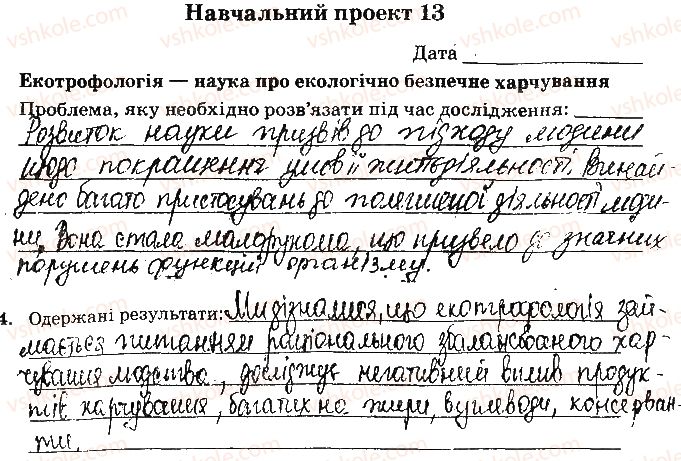 Навчальний проект 13
Дата
Екотрофологія — наука про екологічно безпечне харчування
Проблема, яку необхідно розв'язати під час дослідження:
Розвиток науки призвів до підходу людини
щодо покращення умов її життєдіяльності. Винай-
дено багато пристосувань до полегшеної діяльності люди-
ни. Вона стала малорухома, що призвело до значних
порушень функцій організму.
4. Одержані результати: Ми дізналися, що екотрофологія зай-
мається питанням раціонального збалансованого хар-
чування людства, досліджує негативний вплив продук-
тів харчування, багатих на жири, вуглеводи, консерван-
ти.